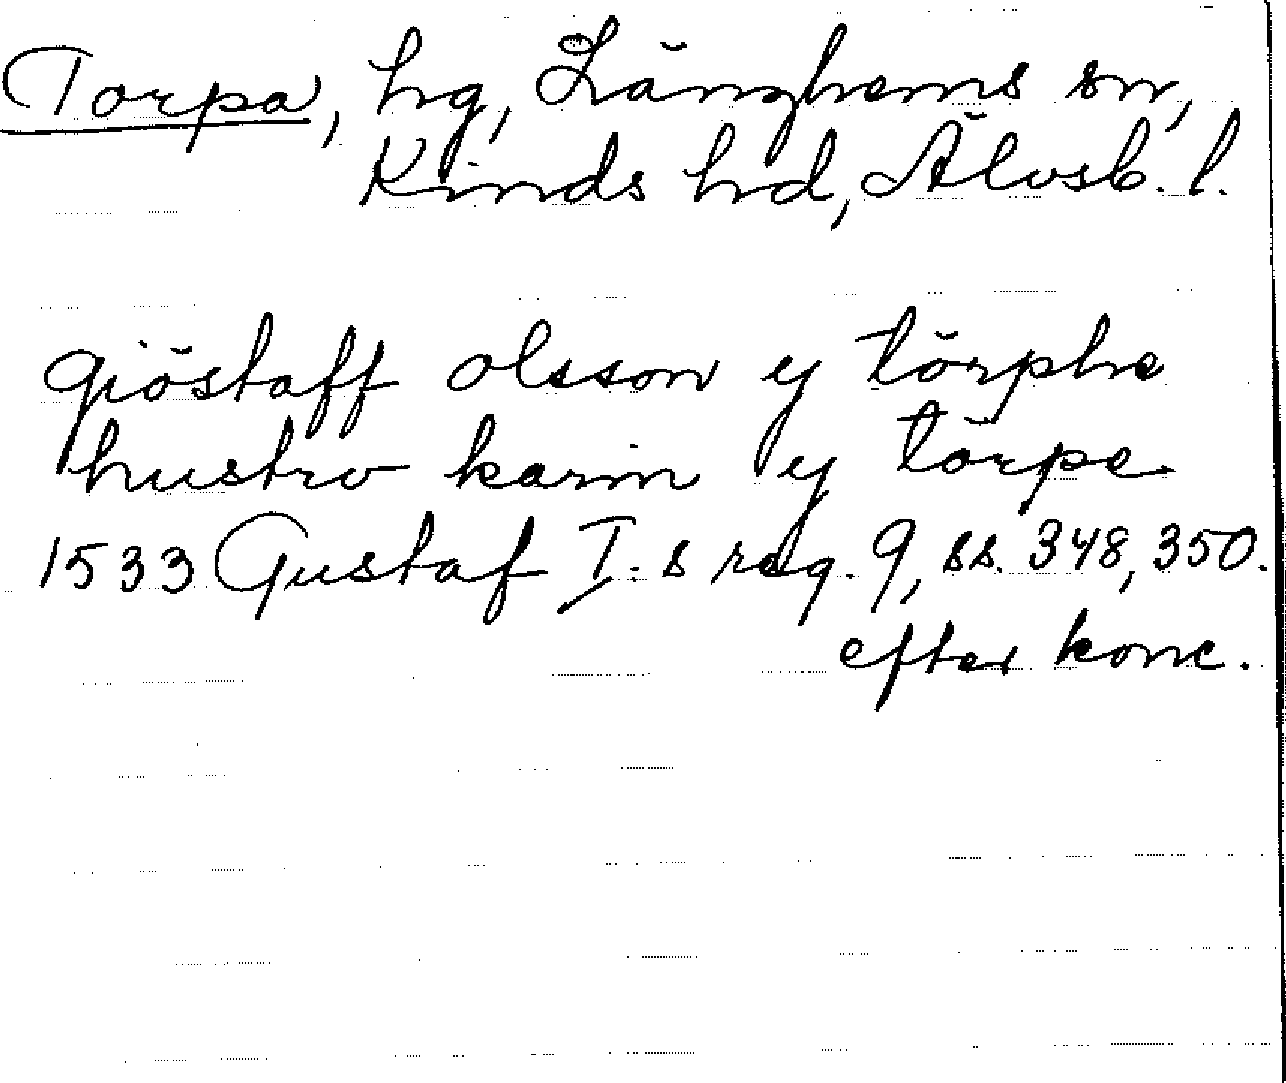 Torpa, hg, Länghems sn,
Kinds hd, Älvsb. l.
giöstaff olsson y törphe
hustrv karin y törpe
1533 Gustaf I:s reg. 9, ss. 348, 350.
efter konc.